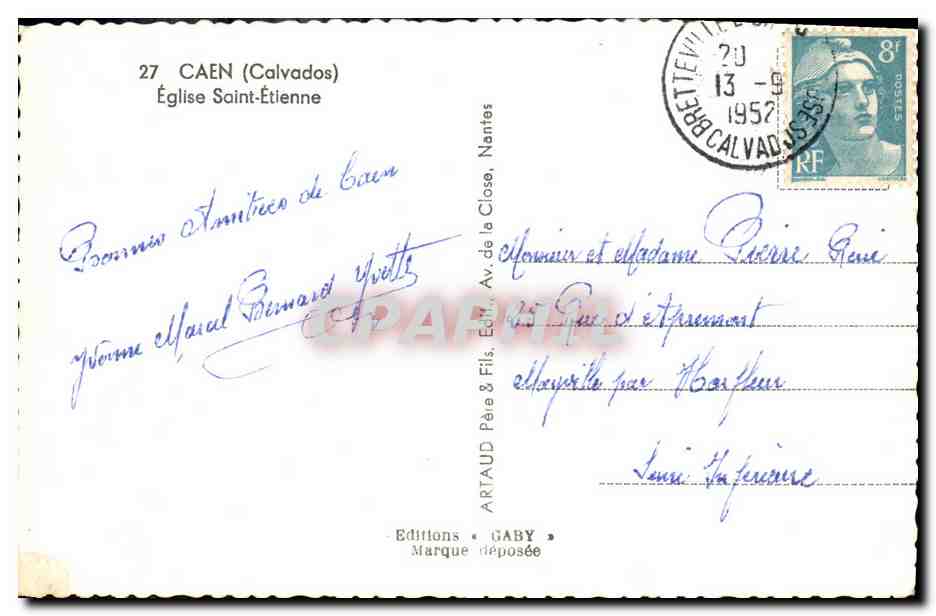 27 CAEN (Calvados)
Église Saint-Étienne
Bonnes Amitiées de Caen
Yvonne Marcel Bernard Yvette
ARTAUD Père & Fils, Edit., Av. de la Close, Nantes
Editions « GABY »
Marque déposée
20
13 -9
1952
CALVADOS
8f
POSTES
RF
Monsieur et Madame Pierre René
25 Rue d'Apremont
Mayville par Harfleur
Seine Inférieure
CPAPHIL